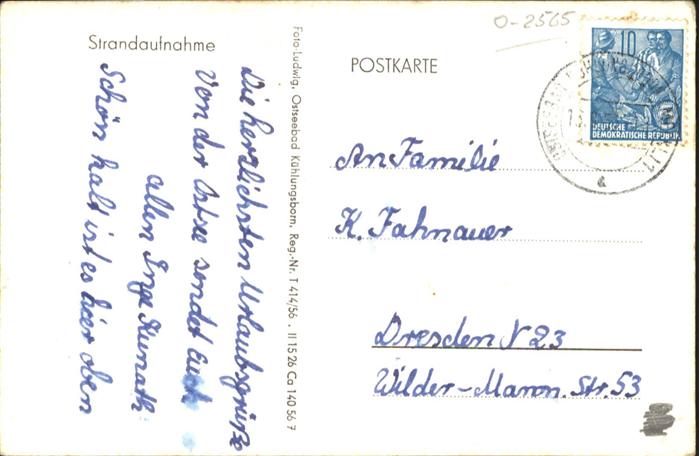 O-2565
Strandaufnahme
Die herzlichsten Urlaubsgrüße
von der Ostsee sendet Euch
allen Inge Kunath.
Schön kalt ist es hier oben
Foto-Ludwig, Ostseebad Kühlungsborn, Reg.-Nr. T 414/56 . II 15 26 Ca 140 56 7
POSTKARTE
10
DEUTSCHE
DEMOKRATISCHE REPUBLIK
An Familie
K. Fahnauer
Dresden N 23
Wilder-Mann. Str. 53